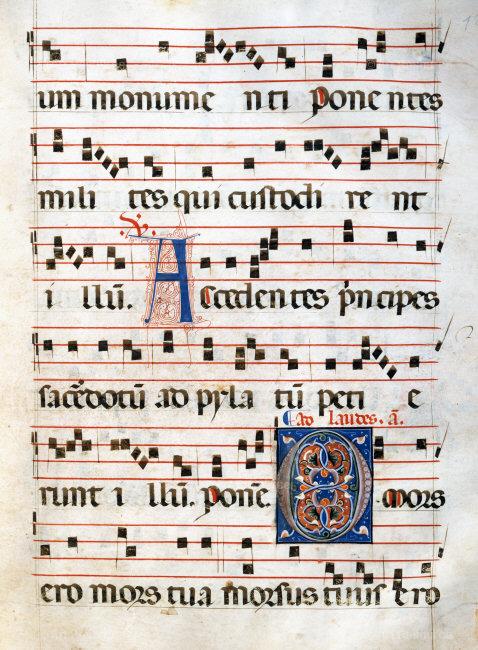 um monume nti pone ntes
mili tes qui custodi re nt
℣.
i llū. Accedentes p̄ncipes
sac̄dotū ad pyla tū peti e
Ad laudes. a͞.
runt i llū. Ponēt. O mors
ero mors tua morsus tuus ero